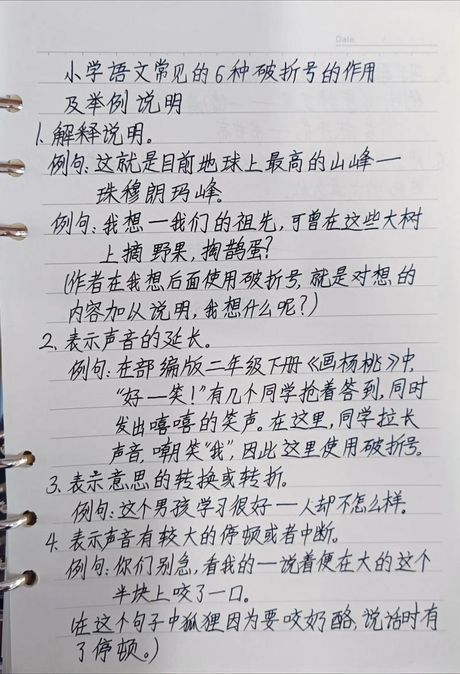 Date
小学语文常见的6种破折号的作用
及举例说明
1.解释说明。
例句:这就是目前地球上最高的山峰一
珠穆朗玛峰。
例句:我想一我们的祖先,可曾在这些大树
上摘野果,掏鹊蛋?
(作者在我想后面使用破折号,就是对想的
内容加以说明,我想什么呢?)
2.表示声音的延长。
例句:在部编版二年级下册《画杨桃》中,
“好一笑!”有几个同学抢着答到,同时
发出嘻嘻的笑声。在这里,同学拉长
声音,嘲笑“我”,因此这里使用破折号。
3.表示意思的转换或转折。
例句:这个男孩学习很好一人却不怎么样。
4.表示声音有较大的停顿或者中断。
例句:你们别急,看我的一说着便在大的这个
半块上咬了一口。
(在这个句子中狐狸因为要咬奶酪,说话时有
了停顿。)